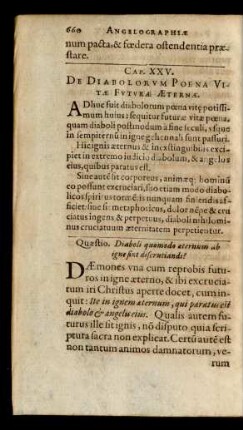 660 ANGELOGRAPHIÆ
num pacta & fœdera ostendentia præ-
stare.
CAP. XXV.
DE DIABOLORVM POENA VI-
TÆ FVTVRÆ ÆTERNÆ.
ADhuc fuit diabolorum pœna vitę potissi-
mum huius; sequitur futuræ vitæ pœna,
quam diaboli postmodum à fine seculi, vsque
in sempiternũ in igne gehennali sunt passuri.
Hic ignis æternus & inextinguibilis exci-
piet in extremo iudicio diabolum, & angelos
eius, quibus paratus est.
Siue autẽ sit corporeus, animæq; hominũ
eo possunt excruciari, siuo etiam modo diabo-
licos spiritus torquẽs: nunquam finiendo affi-
ciet: siue sit metaphoricus, dolor nẽpe & cru-
ciatus ingens & perpetuus, diaboli nihilomi-
nus cruciatuum æternitatem perpetientur.
Quæstio. Diaboli quomodo æternum ab
igne sint discruciandi?
DÆmones vna cum reprobis futu-
ros in igne æterno, & ibi excrucia-
tum iri Christus aperte docet, cum in-
quit: Ite in ignem aternum, qui paratus est
diabolo & angelis eius. Qualis autem fu-
turus ille sit ignis, nõ disputo quia scri-
ptura sacra non explicat. Certũ autẽ est
non tantum animos damnatorum, ve-
rum